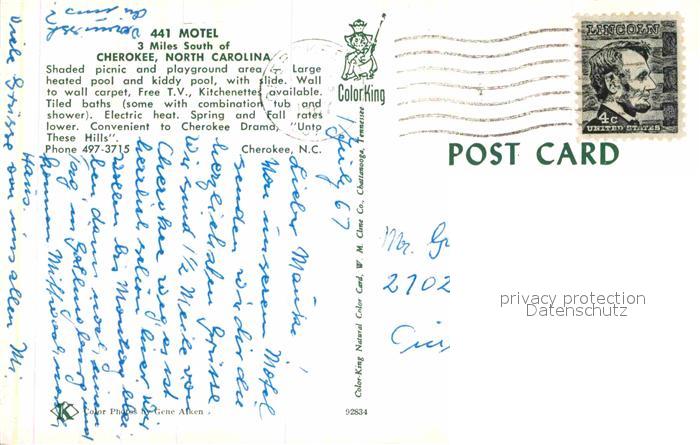 441 MOTEL
3 Miles South of
CHEROKEE, NORTH CAROLINA
Shaded picnic and playground area. Large
heated pool and kiddy pool, with slide. Wall to
wall carpet, Free T.V., Kitchenettes available.
Tiled baths (some with combination tub and
shower). Electric heat. Spring and Fall rates
lower. Convenient to Cherokee Drama, "Unto
These Hills".
Phone 497-3715 Cherokee, N.C.
1 July 67
Lieber
Von unserem Motel
senden wir dir die
herzlichsten Grüsse
Wir sind 1½ Meile von
Cherokee weg, es ist
herrlich schön hier wir
wollen bis Montag blei-
ben, dann noch einen
Tag in Gatlinburg und
kommen Mittwoch nach
Haus.
Viele Grüsse von uns allen
K
Color Photos by Gene Aiken
92834
Color-King Natural Color Card, W. M. Cline Co., Chattanooga, Tennessee
Color-King
LINCOLN
4c
UNITED STATES
POST CARD
Mr. G
2702
privacy protection
Datenschutz